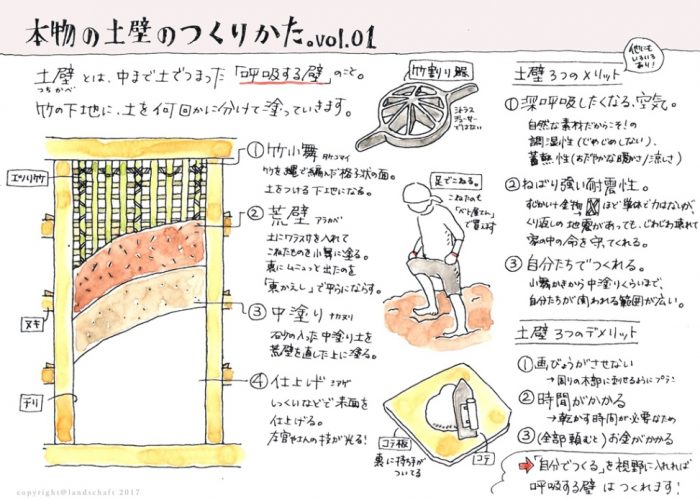 本物の土壁のつくりかた。vol.01
他にもいろいろあり!
土壁とは、中まで土でつまった「呼吸する壁」のこと。
つちかべ
竹の下地に、土を何回かに分けて塗っていきます。
エツリ竹
ヌキ
チリ
①竹小舞 タケコマイ
竹を縄で編んだ格子状の面。
土をつける下地になる。
②荒壁 アラカベ
土にワラスサを入れて
こねたものを小舞に塗る。
裏にムニュッと出たのを
「裏かえし」で平らにならす。
③中塗り ナカヌリ
石少の入った中塗り土を
荒壁を直した上に塗る。
④仕上げ シアゲ
しっくいなどで表面を
仕上げる。
左官やさんの技が光る!
竹割り器
シトラス
ジューサー
ではない
足でこねる。
こねたのも
で買えます
コテ板
裏に持ち手が
ついてる
コテ
土壁 3つのメリット
①深呼吸したくなる、空気。
自然な素材だからこその
調湿性(じめじめしない)、
蓄熱性(おだやかな暖かさ/涼しさ)
②ねばり強い耐震性。
ほど単体で力はないが、
くり返しの地震があっても、じわじわ壊れて
家の中の命を守ってくれる。
③自分たちでつくれる。
小舞かきから中塗りくらいまで、
自分たちが関われる範囲が広い。
土壁 3つのデメリット
①画びょうがさせない
→周りの木部に刺せるようにプチ
②時間がかかる
→乾かす時間が必要なため
③(全部頼むと)お金がかかる
➡「自分でつくる」を視野に入れれば
呼吸する壁はつくれます!
copyright@landschaft 2017